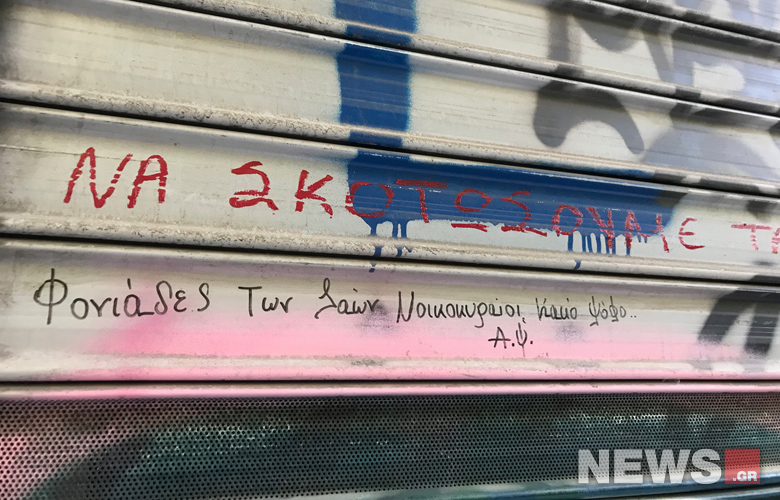 ΝΑ ΣΚΟΤΩΣΟΥΜΕ ΤΑ
Φονιάδες Των Ζαών Νοικοκυραίοι, κακό ψόφο..
Α.Ψ.
NEWS.GR